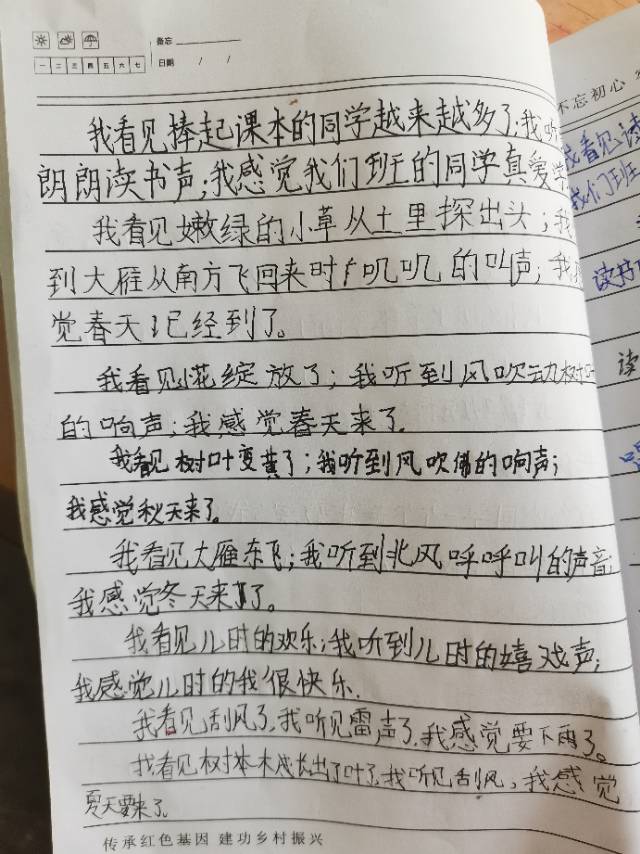 备忘
一 二 三 四 五 六 七 日期 / /
我看见捧起课本的同学越来越多了；我听
朗朗读书声；我感觉我们班的同学真爱学
我看见嫩绿的小草从土里探出头；我
到大雁从南方飞回来时叽叽的叫声；我
觉春天已经到了。
我看见小花绽放了；我听到风吹动树叶
的响声；我感觉春天来了.
我看见树叶变黄了；我听到风吹的响声；
我感觉秋天来了。
我看见大雁东飞；我听到北风呼呼叫的声音
我感觉冬天来了。
我看见儿时的欢乐；我听到儿时的嬉戏声；
我感觉儿时的我很快乐.
我看见刮风了，我听见雷声了，我感觉要下雨了。
我看见树木长出了叶了，我听见刮风，我感觉
夏天要来了。
传承红色基因 建功乡村振兴
不忘初心
我看见读
我们班
读书
读